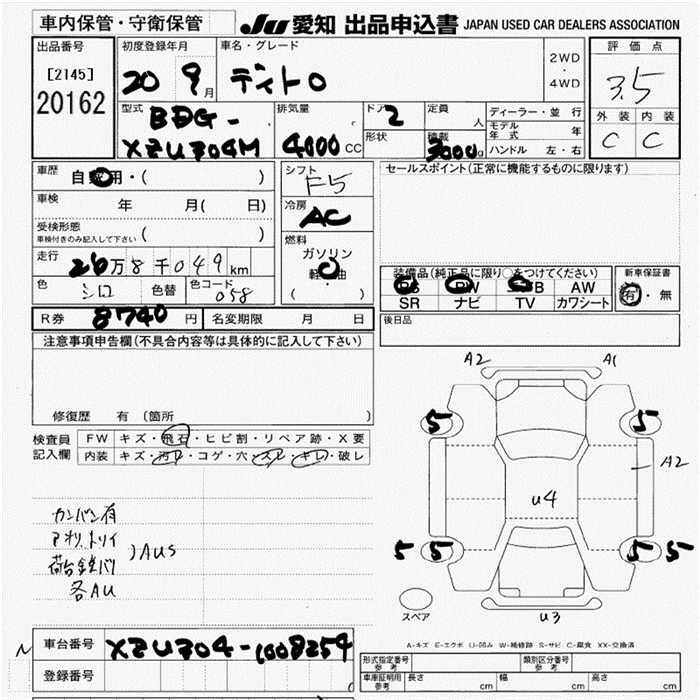 車内保管・守衛保管
JU 愛知 出品申込書 JAPAN USED CAR DEALERS ASSOCIATION
出品番号
[2145]
20162
初度登録年月
20 9月
車名・グレード
2WD
・
4WD
評価点
3.5
外装 内装
C C
型式
BDG-
XZU304M
排気量
4000CC
ドア 2
形状
定員 人
積載
3000
ディーラー・並行
モデル年式 年
ハンドル 左・右
車歴
自家用・( )
車検
年 月( 日)
受検形態
車検付きのみ記入して下さい ( )
走行
26万8千049km
色 シロ 色替 色コード 058
シフト
F5
冷房
AC
燃料
ガソリン
軽油
( )
セールスポイント(正常に機能するものに限ります)
装備品(純正品に限り○をつけてください)
PS PW AW
SR ナビ TV カワシート
新車保証書
有・無
R券 8740円 名変期限 月 日
後日品
注意事項申告欄(不具合内容等は具体的に記入して下さい)
修復歴 有 (箇所 )
検査員記入欄
FW キズ・飛石・ヒビ割・リペア跡・X要
内装 キズ・汚レ・コゲ・穴・スレ・キレ・破レ
カンバン有
荷台鉄バリ
各AU
AUS
A2 A1
5 5
A2
U4
5 5 5 5
スペア
U3
A-キズ E-エクボ U-凹み W-補修跡 S-サビ C-腐食 XX-交換済
N
車台番号 XZU304-1008254
登録番号
形式指定番号 参考
類別区分番号 参考
車庫証明用 参考
長さ cm 幅 cm 高さ cm